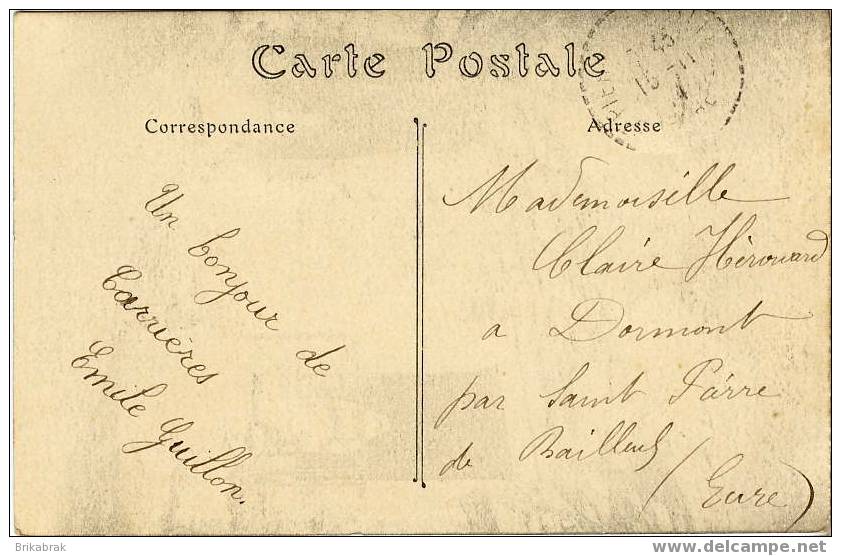 Carte Postale
Correspondance
Un bonjour de
Carrières
Emile Guillon.
Adresse
Mademoiselle
Claire Hérouard
a Dormont
par Saint Pàrre
de Bailleul
(Eure)
Brikabrak
delcampe.net